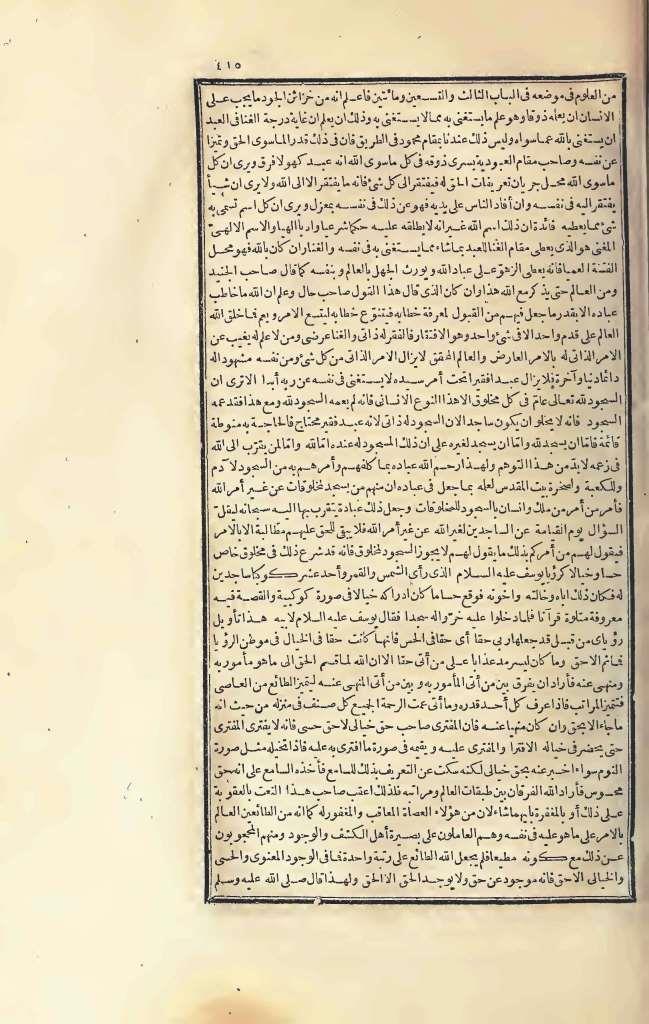 ٤١٥
من العلوم في موضعه في الباب الثالث والتسعين ومائتين فاعلم انه من خزائن الجود ما يجب على
الانسان ان يعلمه ذوقا وهو علم ما يستغنى به مما لا يستغنى به وذلك ان يعلم ان غاية درجة الغنا في العبد
ان يستغنى بالله عما سواه وليس ذلك عندنا بمقام محمود في الطريق فان في ذلك قدر الما سوى الحق وتميزا
عن نفسه وصاحب مقام العبودية يسرى ذوقه في كل ما سوى الله انه عبد كهو لا فرق ويرى ان كل
ما سوى الله محل جريان تعريفات الحق له فيفتقر الى كل شئ فانه ما يفتقر الا الى الله ولا يرى ان شيأ
يفتقر اليه في نفسه وان أفاد الناس على يديه فهو عن ذلك في نفسه بمعزل ويرى ان كل اسم تسمى به
شئ مما يعطيه فائدة ان ذلك اسم الله غير انه لا يطلقه عليه حكما شرعيا وادبا الهيا والاسم الالهى
المغنى هو الذي يعطى مقام الغنا للعبد بما شاء مما يستغنى به في نفسه والغنا وان كان بالله فهو محل
الفتنة العميا فانه يعطى الزهو على عباد الله ويورث الجهل بالعالم وبنفسه كما قال صاحب الجنيد
ومن العالم حتى يذكر مع الله هذا وان كان الذي قال هذا القول صاحب حال وعلم ان الله ما خاطب
عباده الا بقدر ما جعل فيهم من القبول لمعرفة خطابه فيتنوع خطابه ليتسع الامر ويعم فما خلق الله
العالم على قدم واحد الا في شئ واحد وهو الافتقار فالفقر له ذاتى والغنا عرضى ومن لا علم له يغيب عن
الامر الذاتى له بالامر العارض والعالم المحقق لا يزال الامر الذاتى من كل شئ ومن نفسه مشهودا له
دائما دنيا وآخرة فلا يزال عبدا فقيرا تحت أمر سيده لا يستغنى في نفسه عن ربه أبدا الا ترى ان
السجود لله تعالى عام في كل مخلوق الا هذا النوع الانسانى فانه لم يعمه السجود لله ومع هذا فقد عمه
السجود فانه لا يخلو ان يكون ساجدا لان السجود له ذاتى لانه عبد فقير محتاج فالحاجة به منوطة
قائمة فاما ان يسجد لله واما ان يسجد لغيره على ان ذلك المسجود له عنده اما الله واما لمن يتقرب الى الله
في زعمه لا بد من هذا التوهم ولهذا رحم الله عباده بما كلفهم وأمرهم به من السجود لآدم
وللكعبة ولصخرة بيت المقدس لعلمه بما جعل في عباده ان منهم من يسجد لمخلوقات عن غير أمر الله
فأمر من أمر من ملك وانسان بالسجود للمخلوقات وجعل ذلك عبادة يتقرب بها اليه سبحانه ليقل
السؤال يوم القيامة عن الساجدين لغير الله عن غير أمر الله فلا يبقى للحق عليهم مطالبة الا بالامر
فيقول لهم من أمركم بذلك ما يقول لهم لا يجوز السجود لمخلوق فانه قد شرع ذلك في مخلوق خاص
حسا وخيالا كرؤيا يوسف عليه السلام الذي رأى الشمس والقمر وأحد عشر كوكبا ساجدين
له فكان ذلك اباه وخالته واخوته فوقع حسا ما كان ادراكه خيالا في صورة كوكبية والقصة فيه
معروفة متلوة قرآنا فلما دخلوا عليه خروا له سجدا فقال يوسف عليه السلام لابيه هذا تأويل
رؤياى من قبل قد جعلها ربى حقا أى حقا في الحس فانها كانت حقا في الخيال في موطن الرؤيا
فما ثم الا حق وما كان ليسرمد عذابا على من أتى حقا الا ان الله لما قسم الحق الى ما هو مأمور به
ومنهى عنه فأراد ان يفرق بين من أتى المأمور به وبين من أتى المنهى عنه ليتميز الطائع من العاصى
فتتميز المراتب فاذا عرف كل أحد قدره وما أتى عمت الرحمة الجميع كل صنف في منزله من حيث انه
ما جاء الا بحق وان كان منهيا عنه فان المفترى صاحب حق خيالى لا حق حسى فانه لا يفترى المفترى
حتى يحضر في خياله الافترا والمفترى عليه ويقيمه في صورة ما افترى به عليه فاذا تخيله مثل صورة
النوم سواء أخبر عنه بحق خيالى لكنه سكت عن التعريف بذلك للسامع فأخذه السامع على انه حق
محسوس فأراد الله الفرقان بين طبقات العالم ومراتبه فلذلك اعقب صاحب هذا النعت بالعقوبة
على ذلك أو بالمغفرة بأيهما شاء لان من هؤلاء العصاة المعاقب والمغفور له كما انه من الطائعين العالم
بالامر على ما هو عليه في نفسه وهم العاملون على بصيرة أهل الكشف والوجود ومنهم المحجوبون
عن ذلك مع كونه مطيعا فلم يجعل الله الطائع على رتبة واحدة فما في الوجود المعنوى والحسى
والخيالى الا حق فانه موجود عن حق ولا يوجد الحق الا الحق ولهذا قال صلى الله عليه وسلم